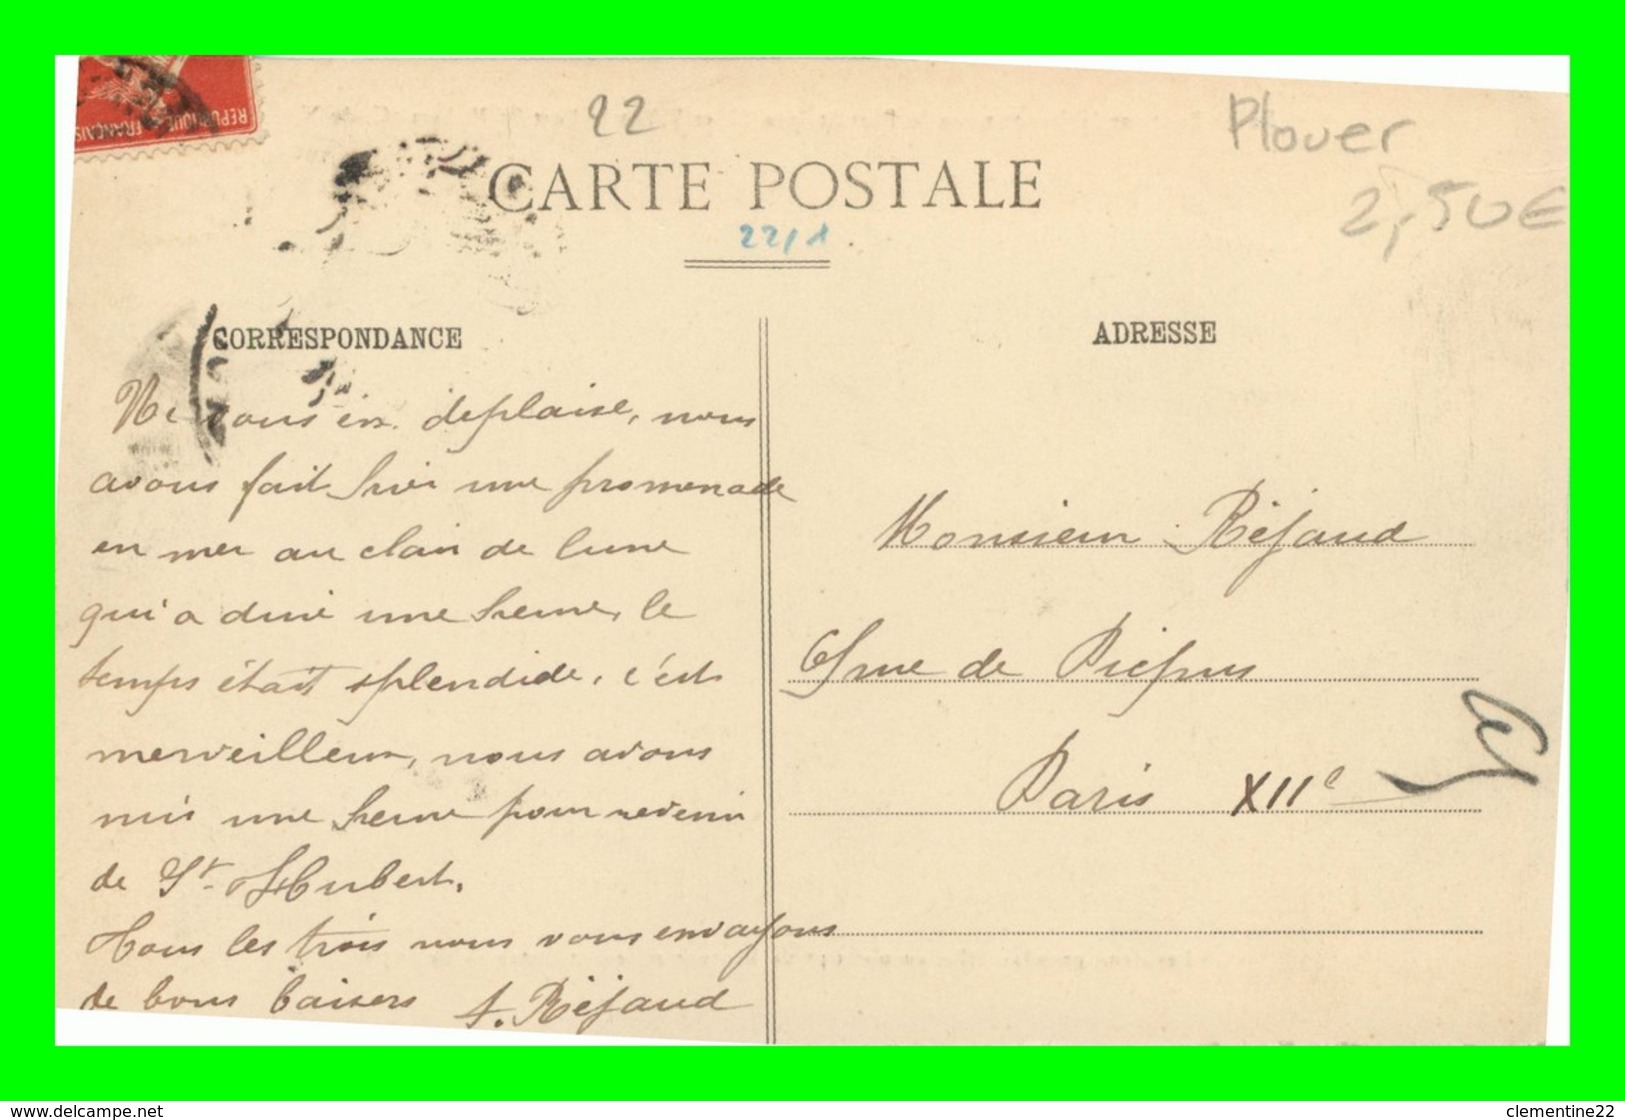 REPUBLIQUE FRANÇAIS
22
Plouer
CARTE POSTALE
2,50€
22/1
CORRESPONDANCE
ADRESSE
Ne vous en déplaise, nous
avons fait hier une promenade
en mer au clair de lune
qui a duré une heure, le
temps était splendide, c'est
merveilleux, nous avons
mis une heure pour revenir
de St. Hubert.
Tous les trois nous vous envoyons
de bons baisers
Monsieur Réjaud
rue de Picpus
Paris XIIe
A. Réjaud
www.delcampe.net
clementine22